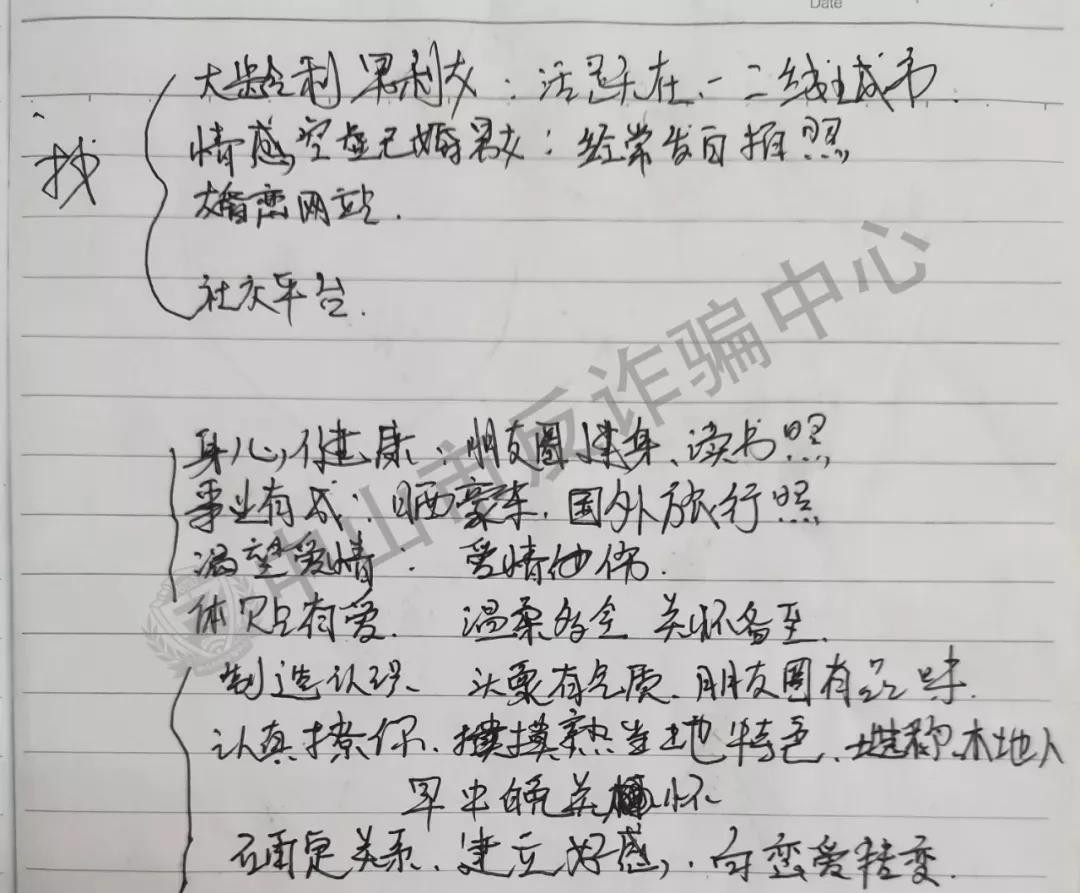 Date
大龄剩男剩女：活跃在一二线城市.
找
情感空虚已婚男女：经常发自拍照
婚恋网站.
社交平台.
中山市反诈骗中心
身心健康：朋友圈健身、读书照
事业有成：晒豪车.国外旅行照
渴望爱情：爱情受伤.
体贴有爱.温柔多金 关怀备至.
制造认识、头象有气质.朋友圈有品味.
认真撩你.摸摸熟当地特色、谎称本地人
早中晚关怀
确定关系.建立好感，.向恋爱转变.